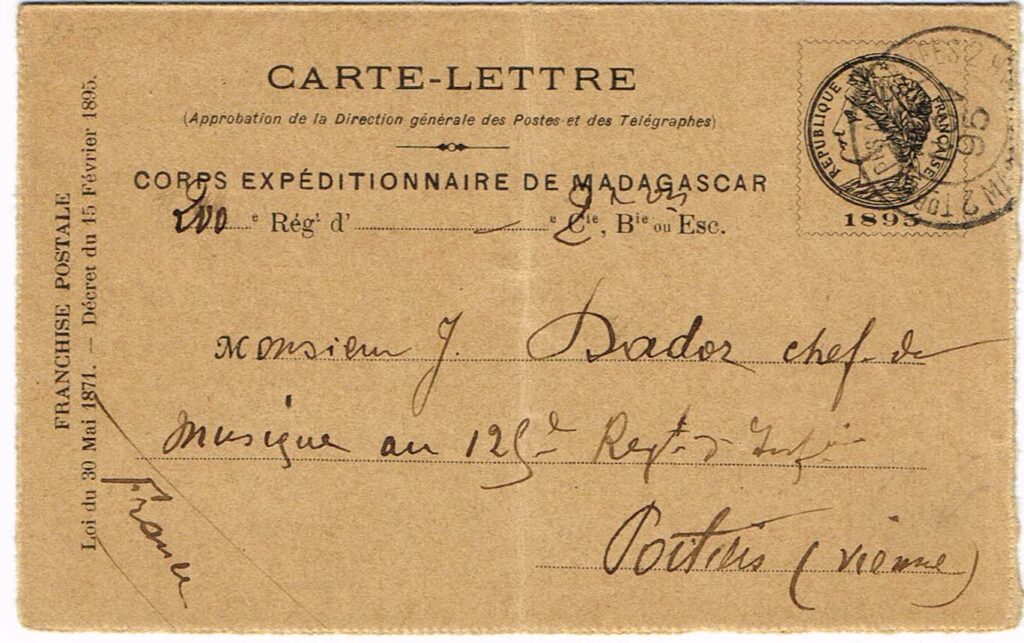 CARTE-LETTRE
(Approbation de la Direction générale des Postes et des Télégraphes)
CORPS EXPÉDITIONNAIRE DE MADAGASCAR
200 e Régt d' — e Cie, Bie ou Esc.
RÉPUBLIQUE FRANÇAISE
1895
95
FRANCHISE POSTALE
Loi du 30 Mai 1871. — Décret du 15 Février 1895.
Monsieur J. Dador chef de
Musique au 125e Regt d'Infie
Poitiers (Vienne)
France